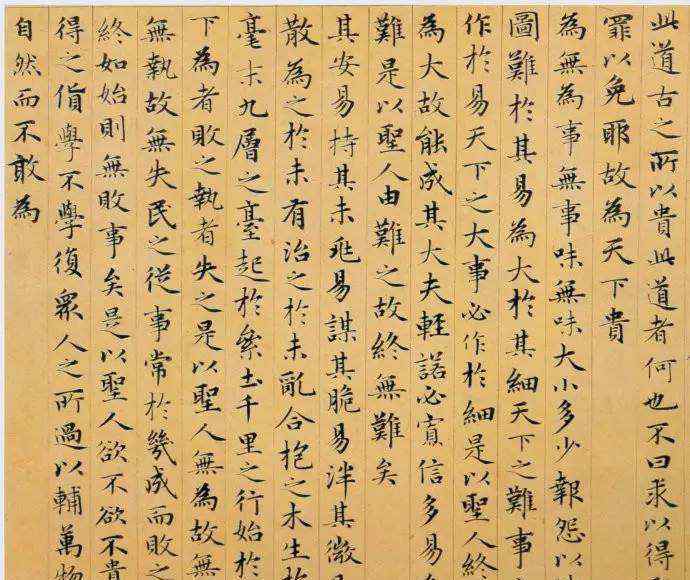 此道古之所以貴此道者何也不曰求以得
罪以免耶故為天下貴
為無為事無事味無味大小多少報怨以
圖難於其易為大於其細天下之難事
作於易天下之大事必作於細是以聖人終
為大故能成其大夫輕諾必寡信多易
難是以聖人由難之故終無難矣
其安易持其未兆易謀其脆易泮其微
散為之於未有治之於未亂合抱之木生於
毫末九層之臺起於絫土千里之行始於
下為者敗之執者失之是以聖人無為故無
無執故無失民之從事常於幾成而敗之
終如始則無敗事矣是以聖人欲不欲不貴
得之貨學不學復眾人之所過以輔萬物
自然而不敢為